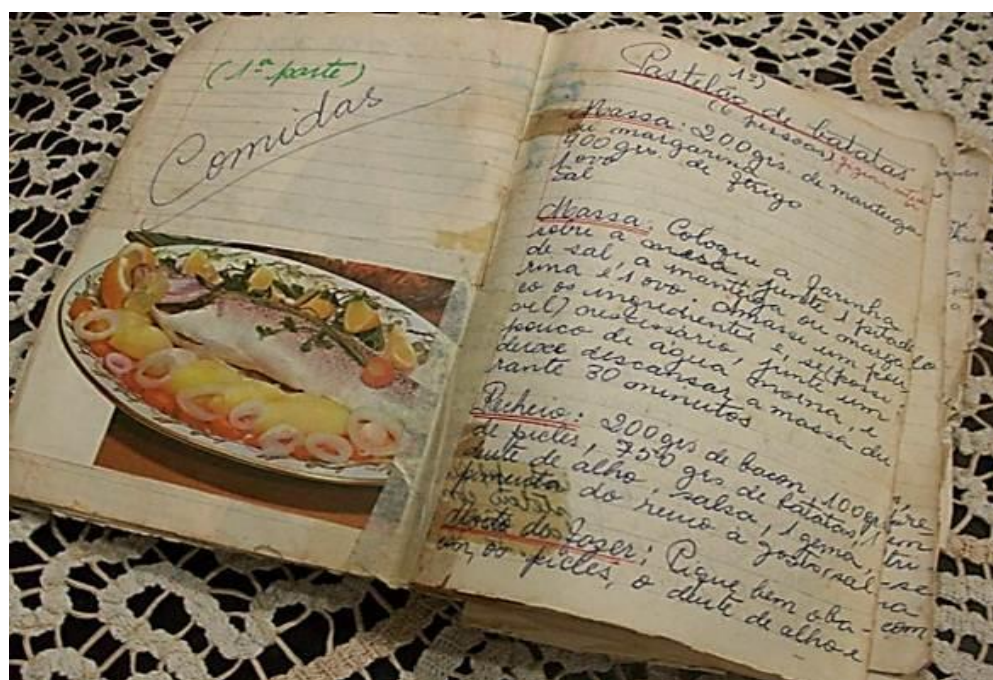 (1ª parte)
Comidas
1º)
Pastelão de batatas
(6 pessoas)
Massa: 200grs. de manteiga
ou margarina
400 grs. de trigo
1 ovo
Sal
Massa: Coloque a farinha
sobre a mesa, junte 1 pitada
de sal, a manteiga ou marga
rina e 1 ovo. Amasse um pou
co os ingredientes e, se
necessário, junte um
pouco de água morna, e
deixe descansar a massa du
rante 30 minutos
Recheio: 200grs de bacon, 100grs
de picles, 750 grs de batatas, 1
dente de alho, salsa, 1 gema,
pimenta do reino à gosto, sal
Modo de fazer: Pique bem o ba-
con, os picles, o dente de alho e